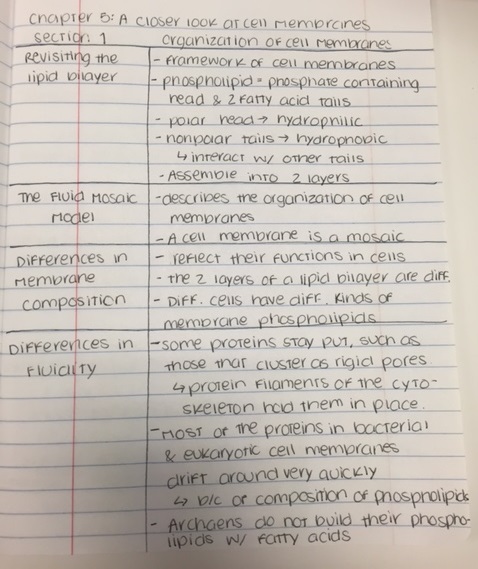 Chapter 5: A closer look at cell membranes
Section: 1 Organization of cell membranes
Revisiting the - framework of cell membranes
lipid bilayer - phospholipid = phosphate containing
head & 2 fatty acid tails
- polar head → hydrophilic
- nonpolar tails → hydrophobic
↳ interact w/ other tails
- Assemble into 2 layers
The Fluid Mosaic - describes the organization of cell
Model membranes
- A cell membrane is a mosaic
Differences in - reflect their functions in cells
Membrane - the 2 layers of a lipid bilayer are diff.
composition - Diff. cells have diff. kinds of
membrane phospholipids
Differences in - some proteins stay put, such as
Fluidity those that cluster as rigid pores
↳ protein filaments of the cyto-
skeleton hold them in place.
- Most of the proteins in bacterial
& eukaryotic cell membranes
drift around very quickly
↳ b/c of composition of phospholipids
- Archaens do not build their phospho-
lipids w/ fatty acids